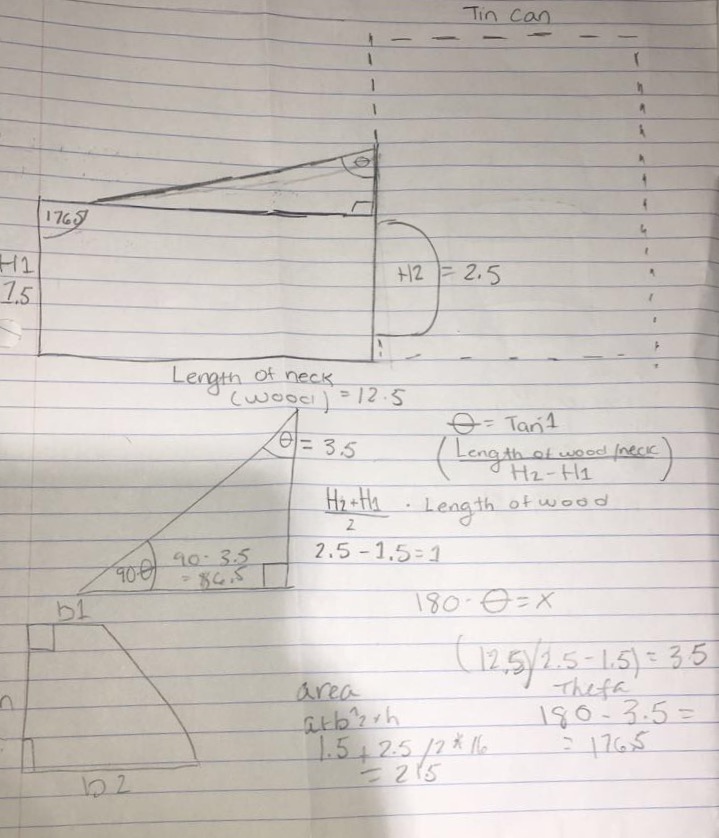 Tin can
θ
176.5
H1
1.5
H2 = 2.5
Length of neck
(wood) = 12.5
θ = 3.5
90-θ
90 - 3.5
= 86.5
θ = Tan-1
(Length of wood/neck
H2-H1)
H2+H1
2
· Length of wood
2.5 - 1.5 = 1
180 - θ = x
(12.5/2.5-1.5) = 3.5
Theta
180 - 3.5 =
= 176.5
b1
h
b2
area
a+b÷2×h
1.5 + 2.5 /2 * 16
= 215